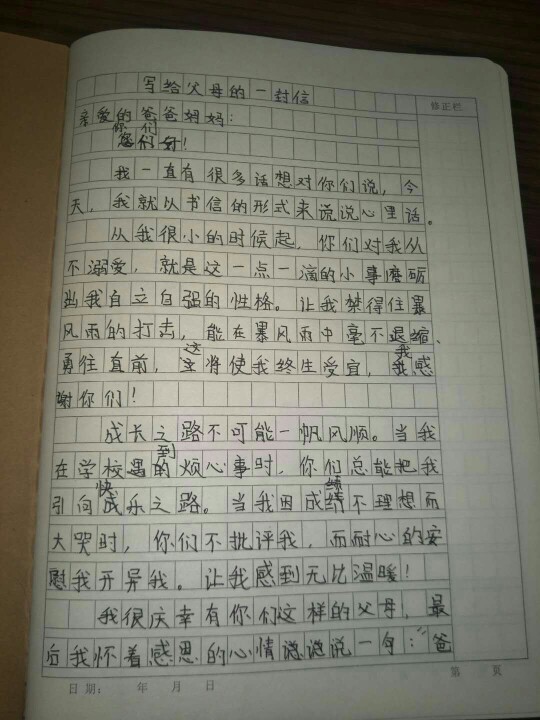 写给父母的一封信
修正栏
亲爱的爸爸妈妈：
你们
您们好！
我一直有很多话想对你们说，今
天，我就以书信的形式来说说心里话。
从我很小的时候起，你们对我从
不溺爱，就是这一点一滴的小事磨砺
出我自立自强的性格。让我禁得住暴
风雨的打击，能在暴风雨中毫不退缩、
勇往直前，这将使我终生受宜，我感
谢你们！
成长之路不可能一帆风顺。当我
在学校遇到的烦心事时，你们总能把我
引向快乐之路。当我因成绩不理想而
大哭时，你们不批评我，而耐心的安
慰我开异我。让我感到无比温暖！
我很庆幸有你们这样的父母，最
后我怀着感恩的心情说说说一句：“爸
日期： 年 月 日
第 页